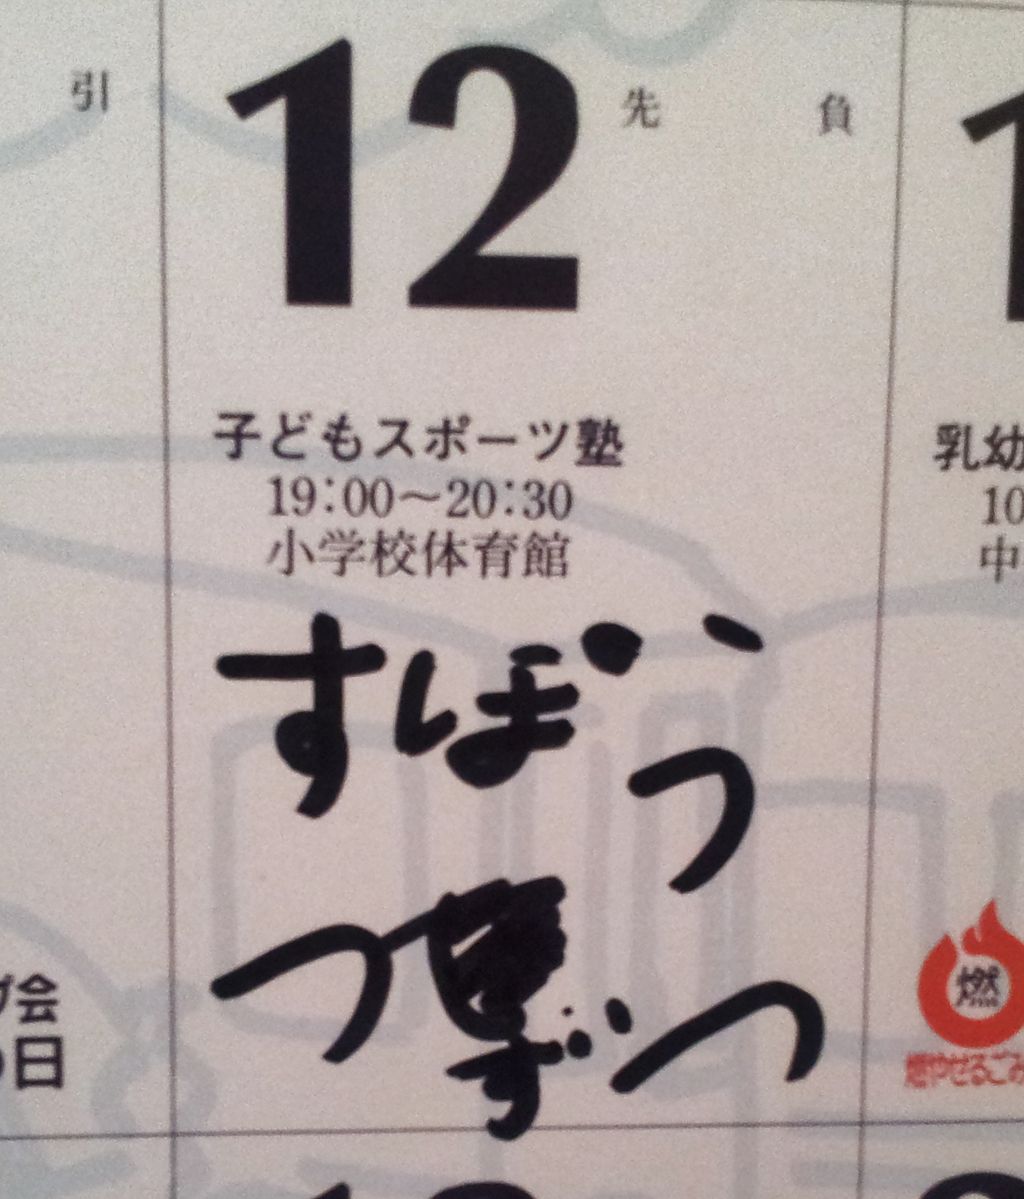 引
12 先負
1
子どもスポーツ塾
19:00～20:30
小学校体育館
乳幼
10
中
すぽうつ
会
日
燃
燃やせるごみ